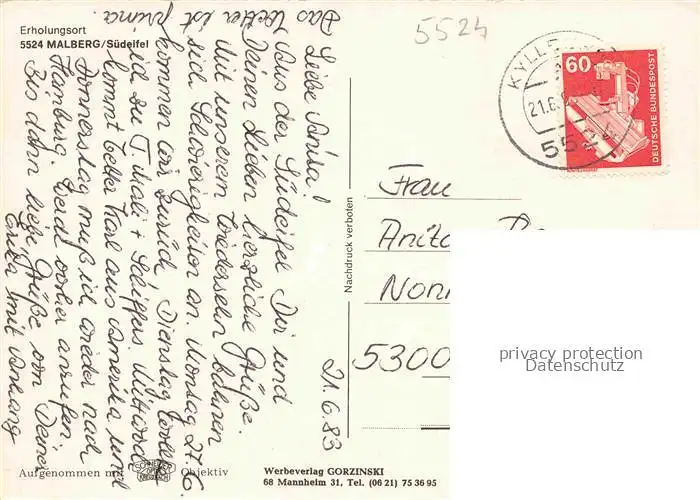 Erholungsort
5524 MALBERG/Südeifel
5524
KYLLB
21.6.
5524
60
DEUTSCHE BUNDESPOST
21.6.83
Liebe Anita!
Aus der Südeifel Dir und
Deinen Lieben herzliche Grüße.
Mit unserem Wiedersehn bahnen
sich Schwierigkeiten an. Montag 27.6.
kommen wir zurück, Dienstag
ich zu T. + Schiffers. Mittwoch
kommt Vetter Karl aus Amerika und
Donnerstag muß ich wieder nach
Hamburg. Werd vorher anrufen.
Bis dahin liebe Grüße von Deiner
mit Anhang
Das Wetter ist prima.
Nachdruck verboten
Frau
Anita
Nonn
5300
privacy protection
Datenschutz
Aufgenommen mit
SCHNEIDER
KREUZNACH
Objektiv
Werbeverlag GORZINSKI
68 Mannheim 31, Tel. (06 21) 75 36 95